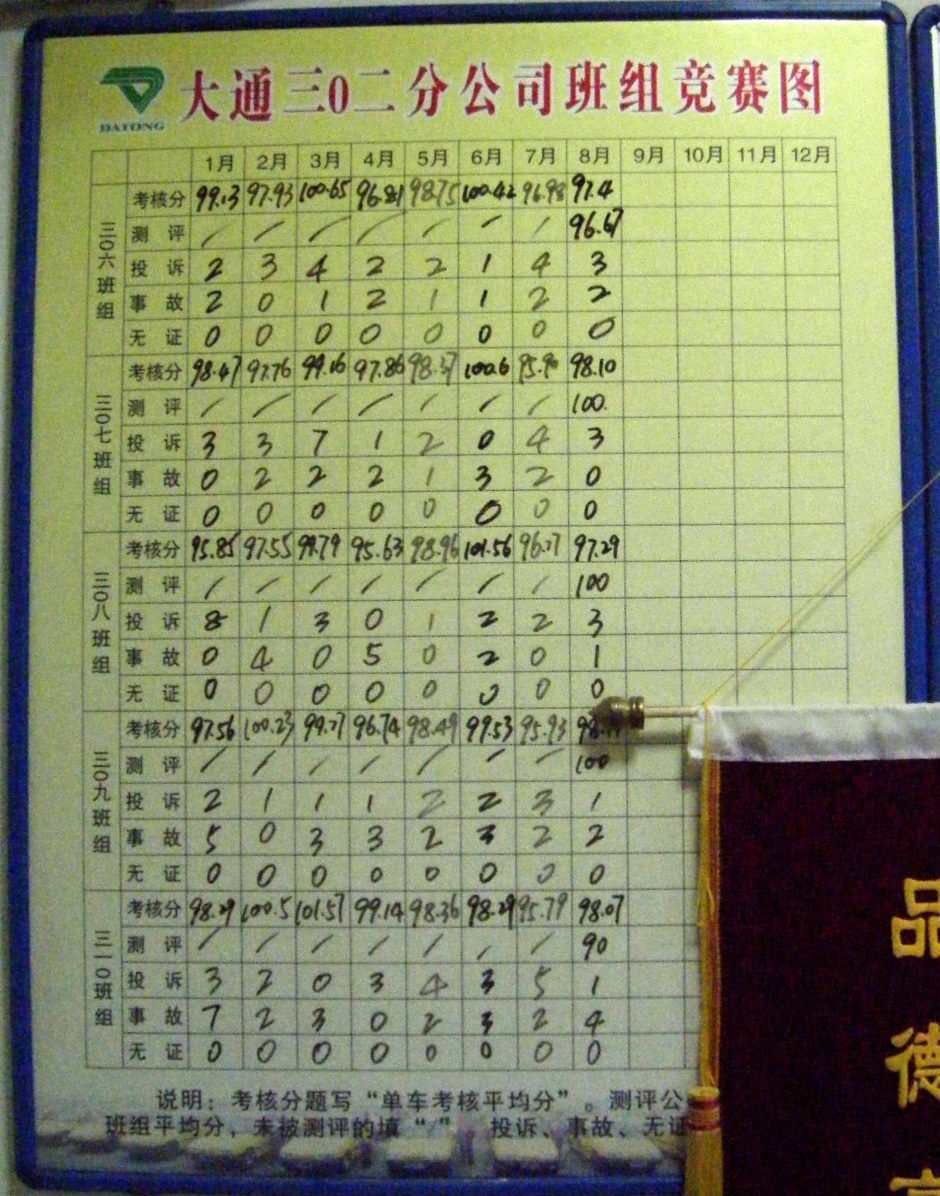 大通三0二分公司班组竞赛图
DATONG
1月 2月 3月 4月 5月 6月 7月 8月 9月 10月 11月 12月
三〇六班组
考核分 99.13 97.93 100.65 96.81 98.75 100.42 96.98 97.4
测评 / / / / / / / 96.67
投诉 2 3 4 2 2 1 4 3
事故 2 0 1 2 1 1 2 2
无证 0 0 0 0 0 0 0 0
三〇七班组
考核分 98.47 97.76 99.16 97.86 98.37 100.6 98.10
测评 / / / / / / / 100.
投诉 3 3 7 1 2 0 4 3
事故 0 2 2 2 1 3 2 0
无证 0 0 0 0 0 0 0 0
三〇八班组
考核分 95.85 97.55 99.79 95.63 98.96 101.56 97.29
测评 / / / / / / / 100
投诉 8 1 3 0 1 2 2 3
事故 0 4 0 5 0 2 0 1
无证 0 0 0 0 0 0 0 0
三〇九班组
考核分 97.56 100.23 96.74 98.49 99.53 95.93
测评 / / / / / / / 100
投诉 2 1 1 1 2 2 3 1
事故 5 0 3 3 2 3 2 2
无证 0 0 0 0 0 0 0 0
三一0班组
考核分 98.29 100.5 101.57 99.14 98.36 98.29 95.79 98.07
测评 / / / / / / / 90
投诉 3 2 0 3 4 3 5 1
事故 7 2 3 0 2 3 2 4
无证 0 0 0 0 0 0 0 0
说明：考核分题写“单车考核平均分”。测评公
班组平均分，未被测评的填“/” 投诉、事故、无证
品
德